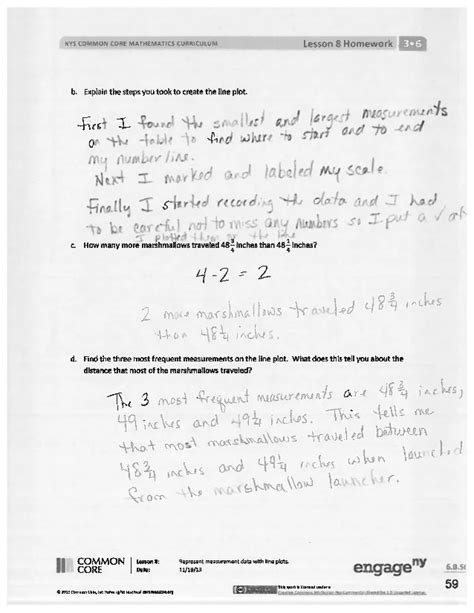 NYS COMMON CORE MATHEMATICS CURRICULUM Lesson 8 Homework 3•6
b. Explain the steps you took to create the line plot.
First I found the smallest and largest measurements
on the table to find where to start and to end
my number line.
Next I marked and labeled my scale.
Finally I started recording the data and I had
to be careful not to miss any numbers so I put a √
I plotted them on the line
c. How many more marshmallows traveled 48 3/4 inches than 48 1/4 inches?
4-2 = 2
2 more marshmallows traveled 48 3/4 inches
than 48 1/4 inches.
d. Find the three most frequent measurements on the line plot. What does this tell you about the
distance that most of the marshmallows traveled?
The 3 most frequent measurements are 48 3/4 inches,
49 inches and 49 1/4 inches. This tells me
that most marshmallows traveled between
48 3/4 inches and 49 1/4 inches when launched
from the marshmallow launcher.
COMMON CORE
Lesson 8: Represent measurement data with line plots.
Date: 11/19/13
engageny
59